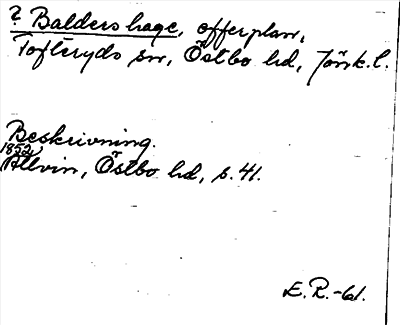 ? Balders hage, offerplan,
Tofteryds sn, Östbo hd, Jönk. l.
Beskrivning.
1852,
Allvin, Östbo hd, s. 41.
E. R. -61.